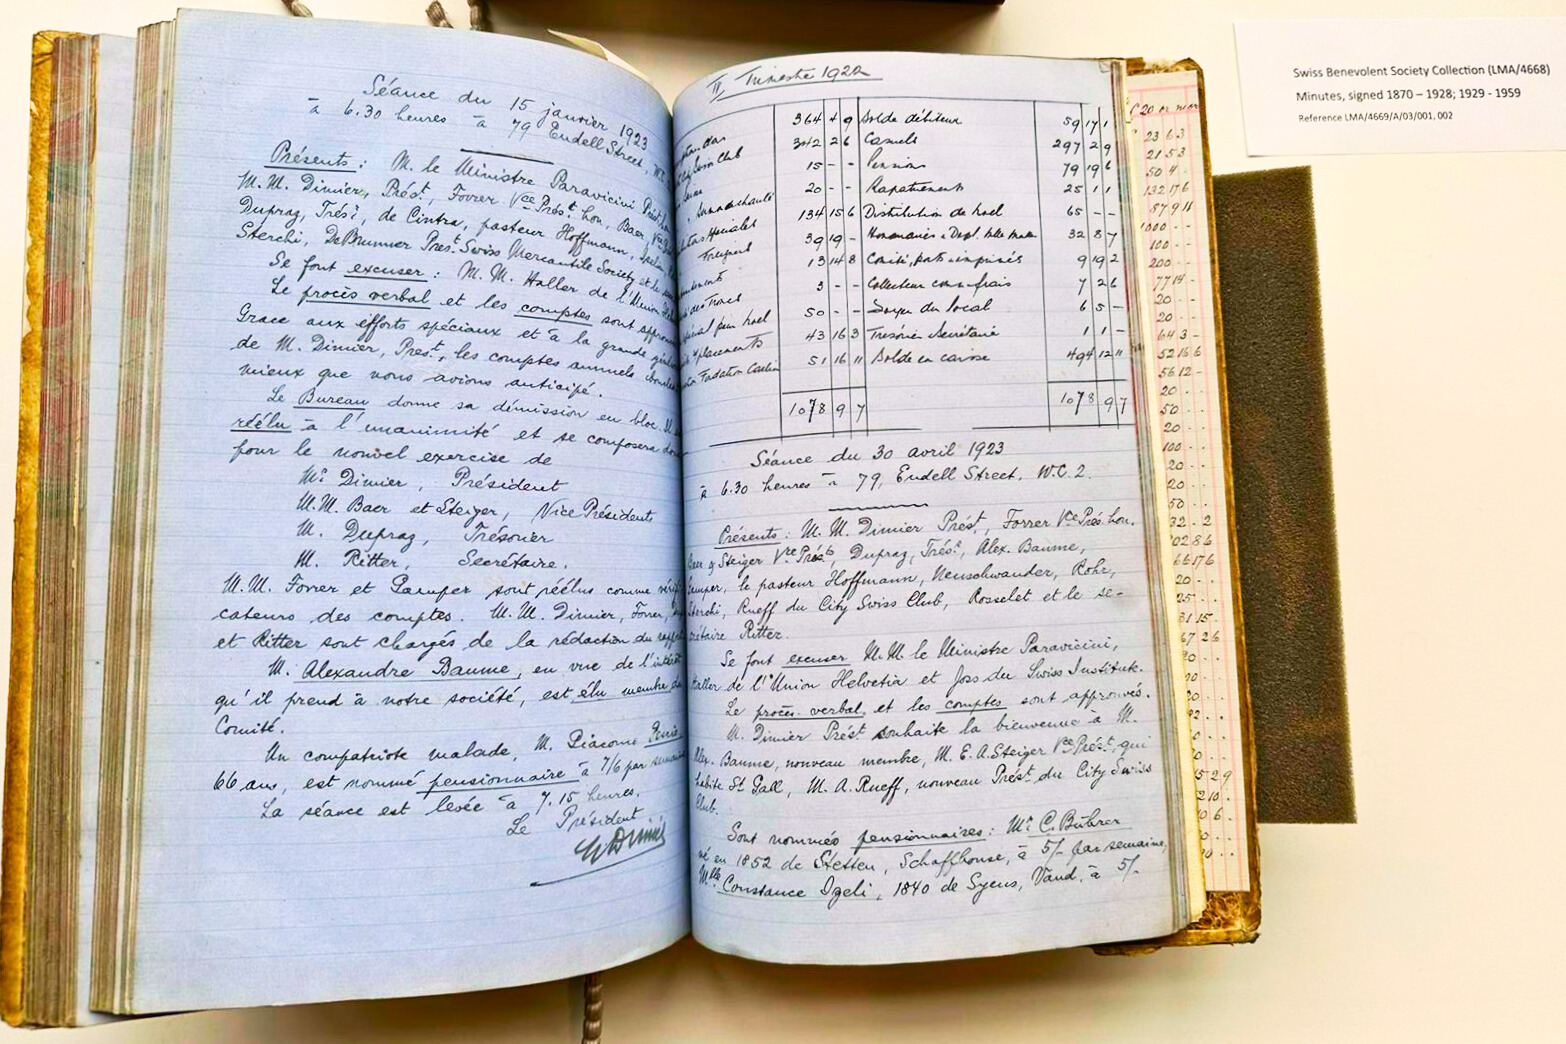 Séance du 15 janvier 1923
à 6.30 heures à 79 Endell Street, W.C.
Présents : M. le Ministre Paravicini Prést. hon.
M.M. Dimier, Prést., Forrer Vce Prést. hon., Baer, Vce
Dupraz, Trésr., de Cintra, pasteur Hoffmann,
Sterchi, DeBrunner Prest. Swiss Mercantile Society et le
Se font excuser : M.M. Haller de l'Union
Le procès verbal et les comptes sont
Grace aux efforts spéciaux et à la grande
de M. Dimier, Prest., les comptes annuels
mieux que nous avions anticipé.
Le Bureau donne sa démission en bloc. Il
réélu à l'unanimité et se composera
pour le nouvel exercise de
Mr. Dimier, Président
M.M. Baer et Steiger, Vice Présidents
M. Dupraz, Trésorier
M. Ritter, Secrétaire.
M.M. Forrer et Gamper sont réélus comme vérifi-
cateurs des comptes. M.M. Dimier, Forrer,
et Ritter sont chargés de la rédaction du
M. Alexandre Baume, en vue de l'intérêt
qu'il prend à notre société, est élu membre du
Comité.
Un compatriote malade, M. Giacomo
66 ans, est nommé pensionnaire à 7/6 par semaine
La séance est levée à 7.15 heures.
Le Président
Dimier
II Trimestre 1922
364 4 9 Solde débiteur 59 17 1
City Swiss Club 342 2 6 Casuels 297 2 9
15 - - Pensions 79 19 6
20 - - Rapatriements 25 1 1
134 15 6 Distribution de Noel 65 - -
39 19 - Honoraires 32 8 7
13 14 8 Comité, ports imprimés 9 19 2
3 - - Collecteur comm. frais 7 2 6
50 - - Loyer du local 6 5 -
43 16 3 Trésorier Secrétaire 1 1 -
Fondation 51 16 11 Solde en caisse 494 12 11
1078 9 7 1078 9 7
Séance du 30 avril 1923
à 6.30 heures à 79, Endell Street, W.C. 2.
Présents : M.M. Dimier Prést., Forrer Vce Prés. hon.
Baer & Steiger Vce Prést., Dupraz, Trésr., Alex. Baume,
Gamper, le pasteur Hoffmann, Neuschwander, Rohr,
Sterchi, Rueff du City Swiss Club, Rosselet et le se-
crétaire Ritter.
Se font excuser M.M. le Ministre Paravicini,
Haller de l'Union Helvetia et Joss du Swiss Institute.
Le procès verbal et les comptes sont approuvés.
M. Dimier Prést. souhaite la bienvenue à M.
Alex. Baume, nouveau membre, M. E.A. Steiger Vce Prést., qui
habite St. Gall, M. A. Rueff, nouveau Prést. du City Swiss
Club.
Sont nommés pensionnaires : Mr. C. Bührer
né en 1852 de Stetten, Schaffhouse, à 5/- par semaine,
Mlle Constance Igeli, 1840 de Syens, Vaud, à 5/-
Swiss Benevolent Society Collection (LMA/4668)
Minutes, signed 1870 – 1928; 1929 - 1959
Reference LMA/4669/A/03/001, 002